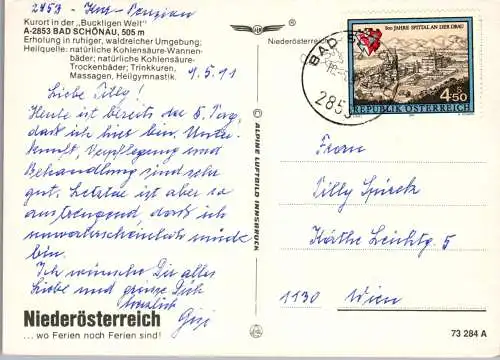 2853 - Kur-Pension
Kurort in der „Buckligen Welt"
A-2853 BAD SCHÖNAU, 505 m
Erholung in ruhiger, waldreicher Umgebung;
Heilquelle: natürliche Kohlensäure-Wannen-
bäder; natürliche Kohlensäure-
Trockenbäder; Trinkuren,
Massagen, Heilgymnastik.
Niederösterreich
9.5.91
Liebe Tilly!
Heute ist bereits der 5. Tag,
daß ich hier bin. Unter-
kunft, Verpflegung und
Behandlung sind sehr
gut. Letztere ist aber so
anstrengend, daß ich
unwahrscheinlich müde
bin.
Ich wünsche Dir alles
Liebe und grüße Dich
herzlich
Gisi
Niederösterreich
... wo Ferien noch Ferien sind!
© ALPINE LUFTBILD INNSBRUCK
800 JAHRE SPITTAL AN DER DRAU
S
4.50
REPUBLIK ÖSTERREICH
BAD
2853
Frau
Tilly
Käthe Leichtg 5
1130 Wien
73 284 A